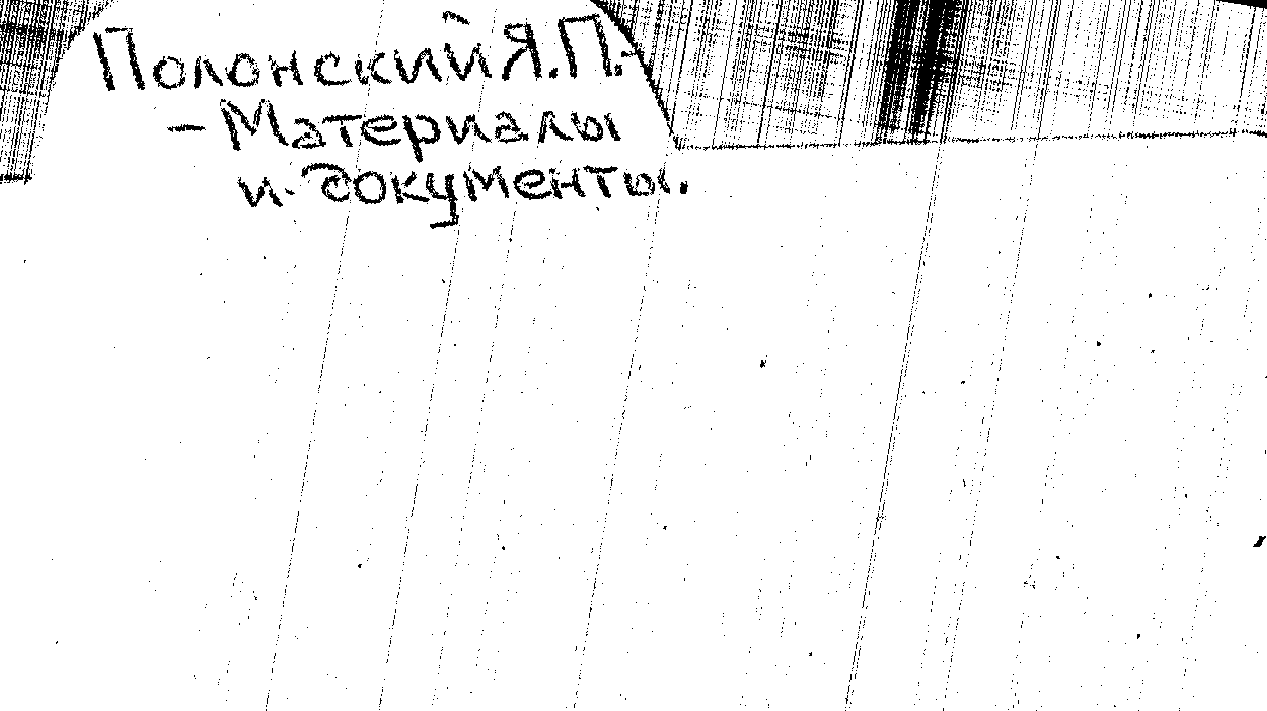 Полонский Я.П.-
- Материалы
и документы.